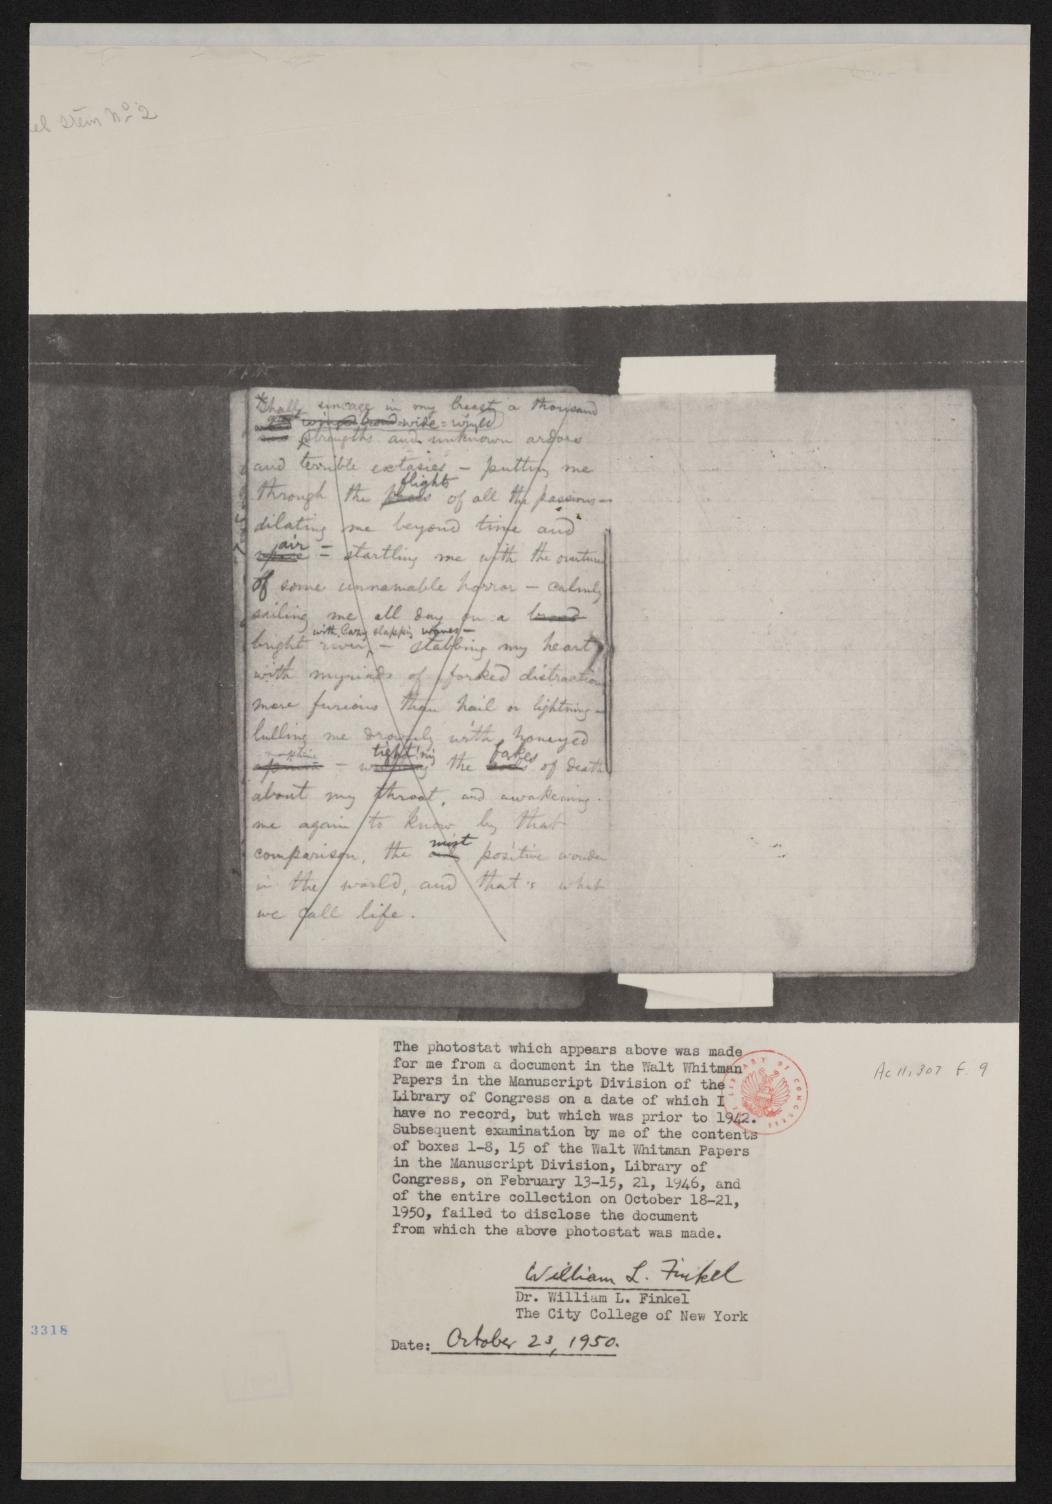 el Stein No 2
Shall uncage in my breast a thousand
winged broad-wide-winged
strengths and unknown ardors
and terrible extasies — putting me
flights
through the paces of all the passions —
dilating me beyond time and
air
space — startling me with the overture
of some unnamable horror — calmly
sailing me all day on a broad
with lazy slapping waves —
bright river, — stabbing my heart
with myriads of forked distractions
more furious than hail or lightning —
lulling me drowsily with honeyed
morphine
tight'ning fakes
— the of death
about my throat, and awakening
me again to know by that
most
comparison, the positive wonder
in the world, and that's what
we call life.
The photostat which appears above was made
for me from a document in the Walt Whitman
Papers in the Manuscript Division of the
Library of Congress on a date of which I
have no record, but which was prior to 1942.
Subsequent examination by me of the contents
of boxes 1-8, 15 of the Walt Whitman Papers
in the Manuscript Division, Library of
Congress, on February 13-15, 21, 1946, and
of the entire collection on October 18-21,
1950, failed to disclose the document
from which the above photostat was made.
LIBRARY OF CONGRESS
Ac 11,307 F. 9
William L. Finkel
Dr. William L. Finkel
The City College of New York
3318
Date: October 23, 1950.